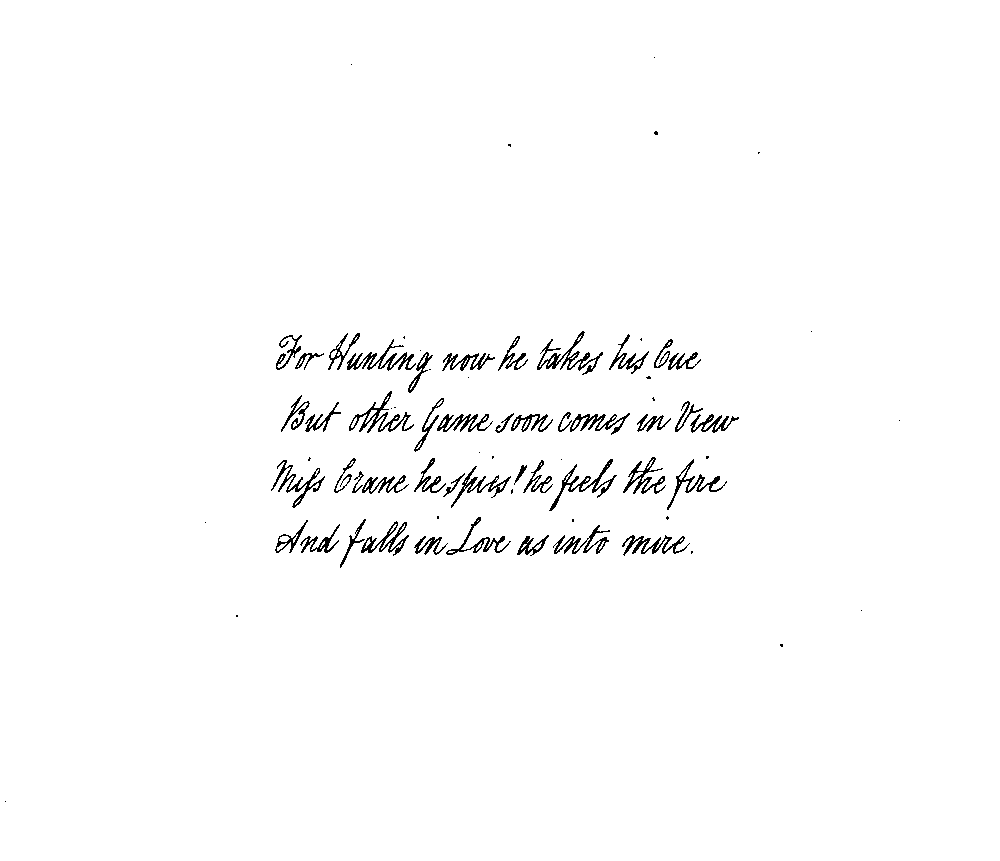 For Hunting now he takes his Cue
But other Game soon comes in View
Miſs Crane he spies! he feels the fire
And falls in Love as into mire.